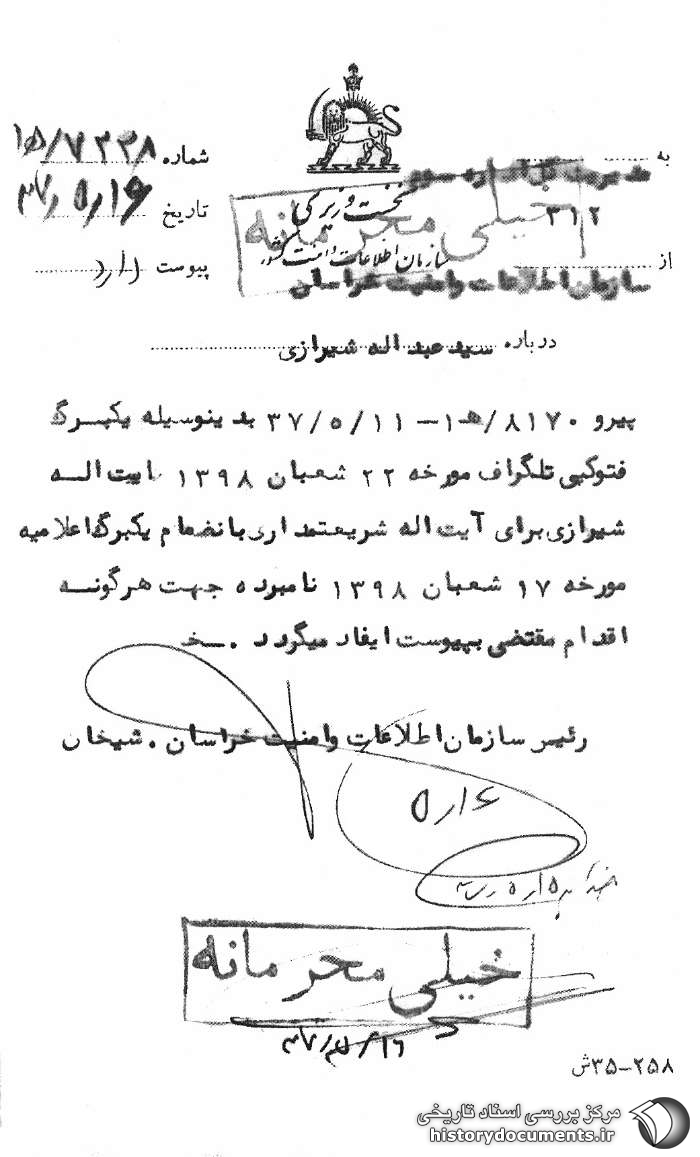 به
شماره ۱۵/۷۳۳۸
مدیریت کل اداره سوم
۳۱۲
تاریخ ۱۶/۵/۳۷
نخست وزیری
خیلی محرمانه
سازمان اطلاعات و امنیت کشور
از
پیوست دارد
سازمان اطلاعات وامنیت خراسان
درباره سید عبد اله شیرازی
پیرو ۸۱۷۰/هـ۱ – ۳۷/۵/۱۱ بدینوسیله یکبرگ
فتوکپی تلگراف مورخه ۲۲ شعبان ۱۳۹۸ ایت الـه
شیرازی برای آیت اله شریعتمداری بانضمام یکبرگ اعلامیه
مورخه ۱۷ شعبان ۱۳۹۸ نامبرده جهت هرگونـه
اقدام مقتضی بپیوست ایفاد میگردد . خـ
رئیس سازمان اطلاعات وامنیت خراسان . شیخان
۱۶/۵
خیلی محرمانه
۳۵-۲۵۸ش
مرکز بررسی اسناد تاریخی
historydocuments.ir